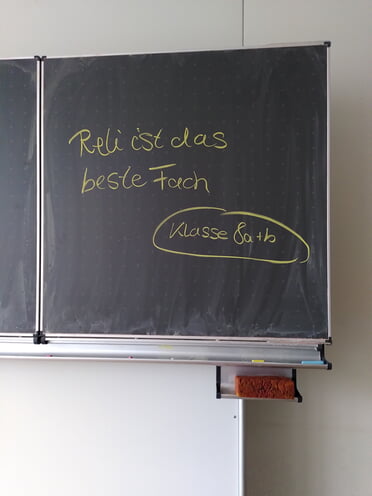 Reli ist das
beste Fach
Klasse 8a+b